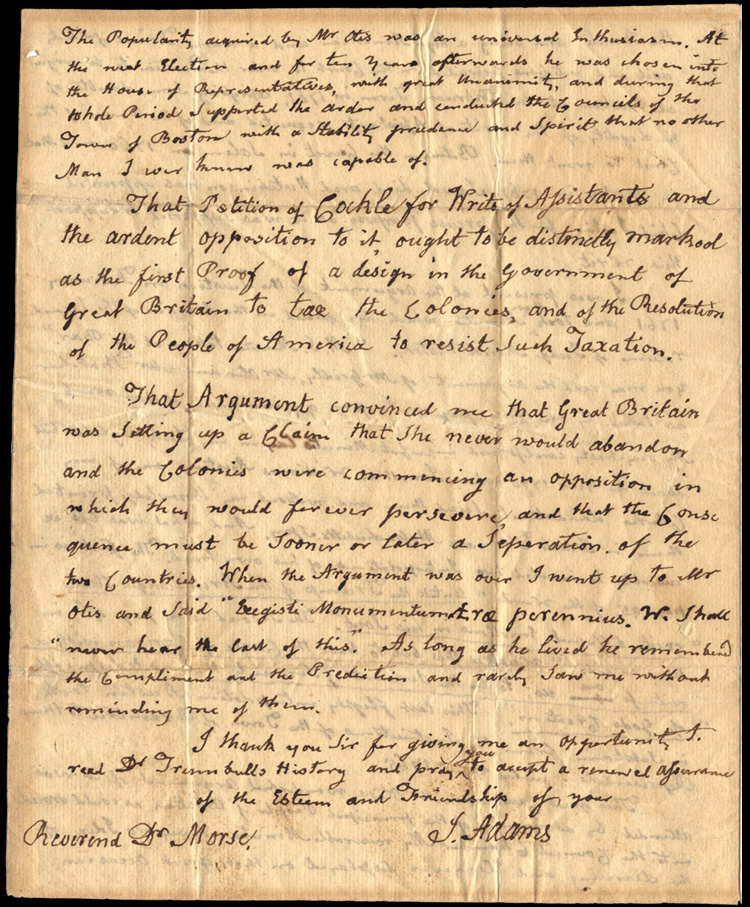 The Popularity acquired by Mr Otis was an universal Enthusiasm. At
the next Election and for ten Years afterwards he was chosen into
the House of Representatives, with great Unanimity, and during that
whole Period Supported the order and conducted the Councils of the
Town of Boston with a Stability prudence and Spirit that no other
Man I ever knew was capable of.
That Petition of Cockle for Writs of Assistants and
the ardent opposition to it ought to be distinctly marked
as the first Proof of a design in the Government of
Great Britain to tax the Colonies, and of the Resolution
of the People of America to resist Such Taxation.
That Argument convinced me that Great Britain
was Setting up a Claim that She never would abandon
and the Colonies were commencing an opposition in
which they would forever persevere, and that the Conse
quence must be Sooner or later a Seperation. of the
two Countries. When the Argument was over I went up to Mr
Otis and Said "Exegisti Monumentum Æræ perennius. We Shall
"never hear the last of this". As long as he lived he remembered
the Compliment and the Prediction and rarely Saw me without
reminding me of them.
I thank you Sir for giving me an opportunity to
read Dr Trumbulls History and pray you to accept a renewed assurance
of the Esteem and Friendship of your
Reverend Dr Morse. J. Adams